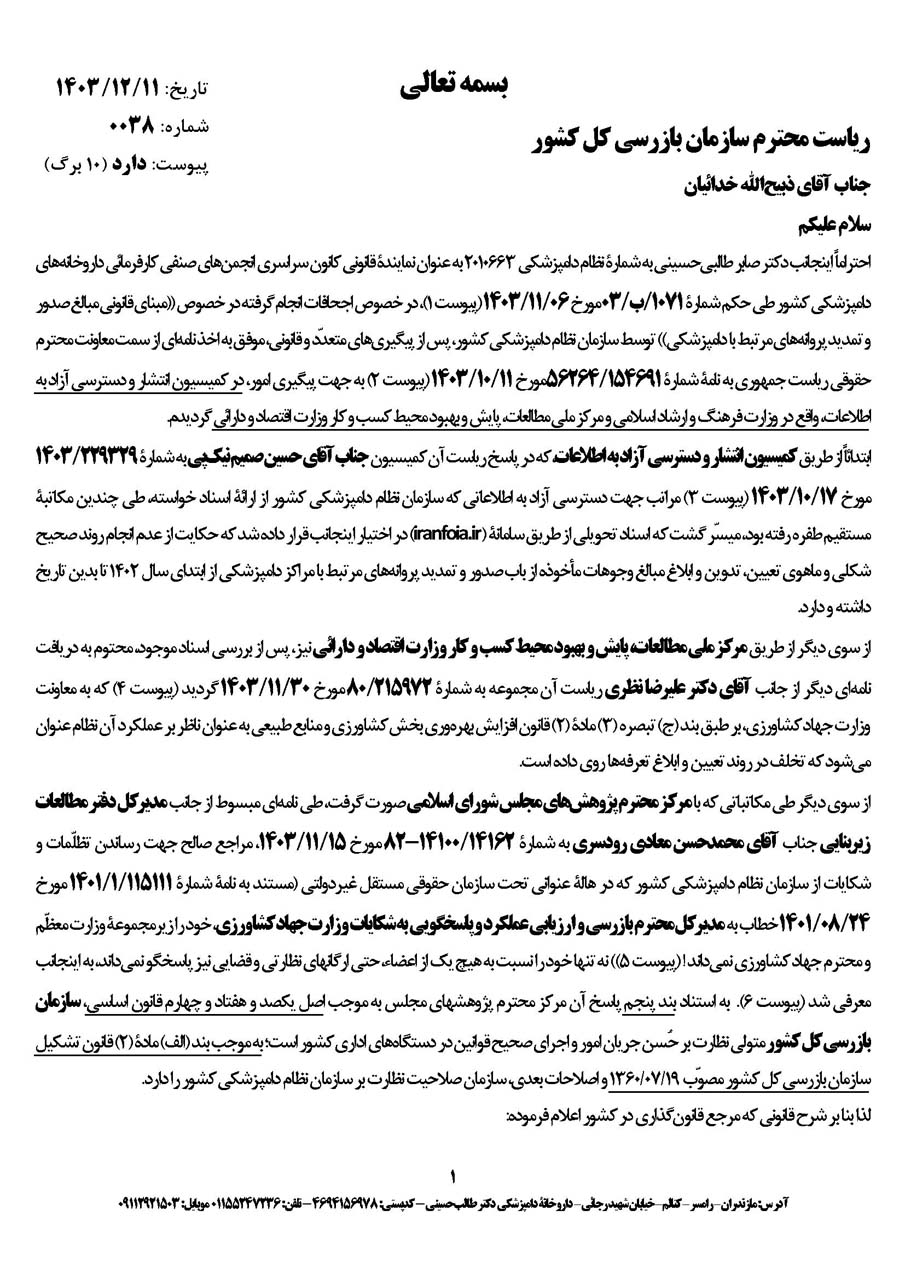 بسمه تعالی
تاریخ: ۱۴۰۳/۱۲/۱۱
شماره: ۰۰۳۸
پیوست: دارد (۱۰ برگ)
ریاست محترم سازمان بازرسی کل کشور
جناب آقای ذبیح‌الله خدائیان
سلام علیکم
احتراماً اینجانب دکتر صابر طالبی‌حسینی به شمارهٔ نظام دامپزشکی ۲۰۱۰۶۶۳ به عنوان نمایندهٔ قانونی کانون سراسری انجمن‌های صنفی کارفرمائی داروخانه‌های
دامپزشکی کشور طی حکم شمارهٔ ۱۰۷۱/ب/۰۳ مورخ ۱۴۰۳/۱۱/۰۶ (پیوست ۱)، در خصوص اجحافات انجام گرفته در خصوص ((مبنای قانونی مبالغ صدور
و تمدید پروانه‌های مرتبط با دامپزشکی)) توسط سازمان نظام دامپزشکی کشور، پس از پیگیری‌های متعدّد و قانونی، موفق به اخذ نامه‌ای از سمت معاونت محترم
حقوقی ریاست جمهوری به نامهٔ شمارهٔ ۵۶۲۶۴/۱۵۴۶۹۱ مورخ ۱۴۰۳/۱۰/۱۱ (پیوست ۲) به جهت پیگیری امور، در کمیسیون انتشار و دسترسی آزاد به
اطلاعات، واقع در وزارت فرهنگ و ارشاد اسلامی و مرکز ملی مطالعات، پایش و بهبود محیط کسب و کار وزارت اقتصاد و دارائی گردیدم.
ابتدائاً از طریق کمیسیون انتشار و دسترسی آزاد به اطلاعات، که در پاسخ ریاست آن کمیسیون جناب آقای حسین صمیم نیک‌پی به شمارهٔ ۱۴۰۳/۲۲۹۳۲۹
مورخ ۱۴۰۳/۱۰/۱۷ (پیوست ۳) مراتب جهت دسترسی آزاد به اطلاعاتی که سازمان نظام دامپزشکی کشور از ارائهٔ اسناد خواسته، طی چندین مکاتبهٔ
مستقیم طفره رفته بود، میسّر گشت که اسناد تحویلی از طریق سامانهٔ (iranfoia.ir) در اختیار اینجانب قرار داده شد که حکایت از عدم انجام روند صحیح
شکلی و ماهوی تعیین، تدوین و ابلاغ مبالغ وجوهات مأخوذه از باب صدور و تمدید پروانه‌های مرتبط با مراکز دامپزشکی از ابتدای سال ۱۴۰۲ تا بدین تاریخ
داشته و دارد.
از سوی دیگر از طریق مرکز ملی مطالعات، پایش و بهبود محیط کسب و کار وزارت اقتصاد و دارائی نیز، پس از بررسی اسناد موجود، محتوم به دریافت
نامه‌ای دیگر از جانب آقای دکتر علیرضا نظری ریاست آن مجموعه به شمارهٔ ۸۰/۲۱۵۹۷۲ مورخ ۱۴۰۳/۱۱/۳۰ گردید (پیوست ۴) که به معاونت
وزارت جهاد کشاورزی، بر طبق بند (ج) تبصره (۲) مادهٔ (۲) قانون افزایش بهره‌وری بخش کشاورزی و منابع طبیعی به عنوان ناظر بر عملکرد آن نظام عنوان
می‌شود که تخلف در روند تعیین و ابلاغ تعرفه‌ها روی داده است.
از سوی دیگر طی مکاتباتی که با مرکز محترم پژوهش‌های مجلس شورای اسلامی صورت گرفت، طی نامه‌ای مبسوط از جانب مدیرکل دفتر مطالعات
زیربنایی جناب آقای محمدحسن معادی رودسری به شمارهٔ ۱۴۱۰۰/۱۴۱۶۲-۸۲ مورخ ۱۴۰۳/۱۱/۱۵، مراجع صالح جهت رساندن تظلّمات و
شکایات از سازمان نظام دامپزشکی کشور که در هالهٔ عنوانی تحت سازمان حقوقی مستقل غیردولتی (مستند به نامهٔ شمارهٔ ۱۴۰۱/۱/۱۱۵۱۱۱ مورخ
۱۴۰۱/۰۸/۲۴ خطاب به مدیر کل محترم بازرسی و ارزیابی عملکرد و پاسخگویی به شکایات وزارت جهاد کشاورزی، خود را زیر مجموعهٔ وزارت معظّم
و محترم جهاد کشاورزی نمی‌داند! (پیوست ۵)) نه تنها خود را نسبت به هیچ یک از اعضاء، حتی ارگانهای نظارتی و قضایی نیز پاسخگو نمی‌داند، به اینجانب
معرفی شد (پیوست ۶). به استناد بند پنجم پاسخ آن مرکز محترم پژوهشهای مجلس به موجب اصل یکصد و هفتاد و چهارم قانون اساسی، سازمان
بازرسی کل کشور متولی نظارت بر حُسن جریان امور و اجرای صحیح قوانین در دستگاه‌های اداری کشور است؛ به موجب بند (الف) مادهٔ (۲) قانون تشکیل
سازمان بازرسی کل کشور مصوّب ۱۳۶۰/۰۷/۱۹ و اصلاحات بعدی، سازمان صلاحیت نظارت بر سازمان نظام دامپزشکی کشور را دارد.
لذا بنا بر شرح قانونی که مرجع قانون‌گذاری در کشور اعلام فرموده:
۱
آدرس: مازندران – رامسر – کتالم – خیابان شهید رجائی – داروخانهٔ دامپزشکی دکتر طالب‌حسینی – کدپستی: ۴۶۹۴۱۵۶۹۷۸ – تلفن: ۰۱۱۵۵۲۴۷۲۳۶ موبایل: ۰۹۱۱۲۹۲۱۵۰۳